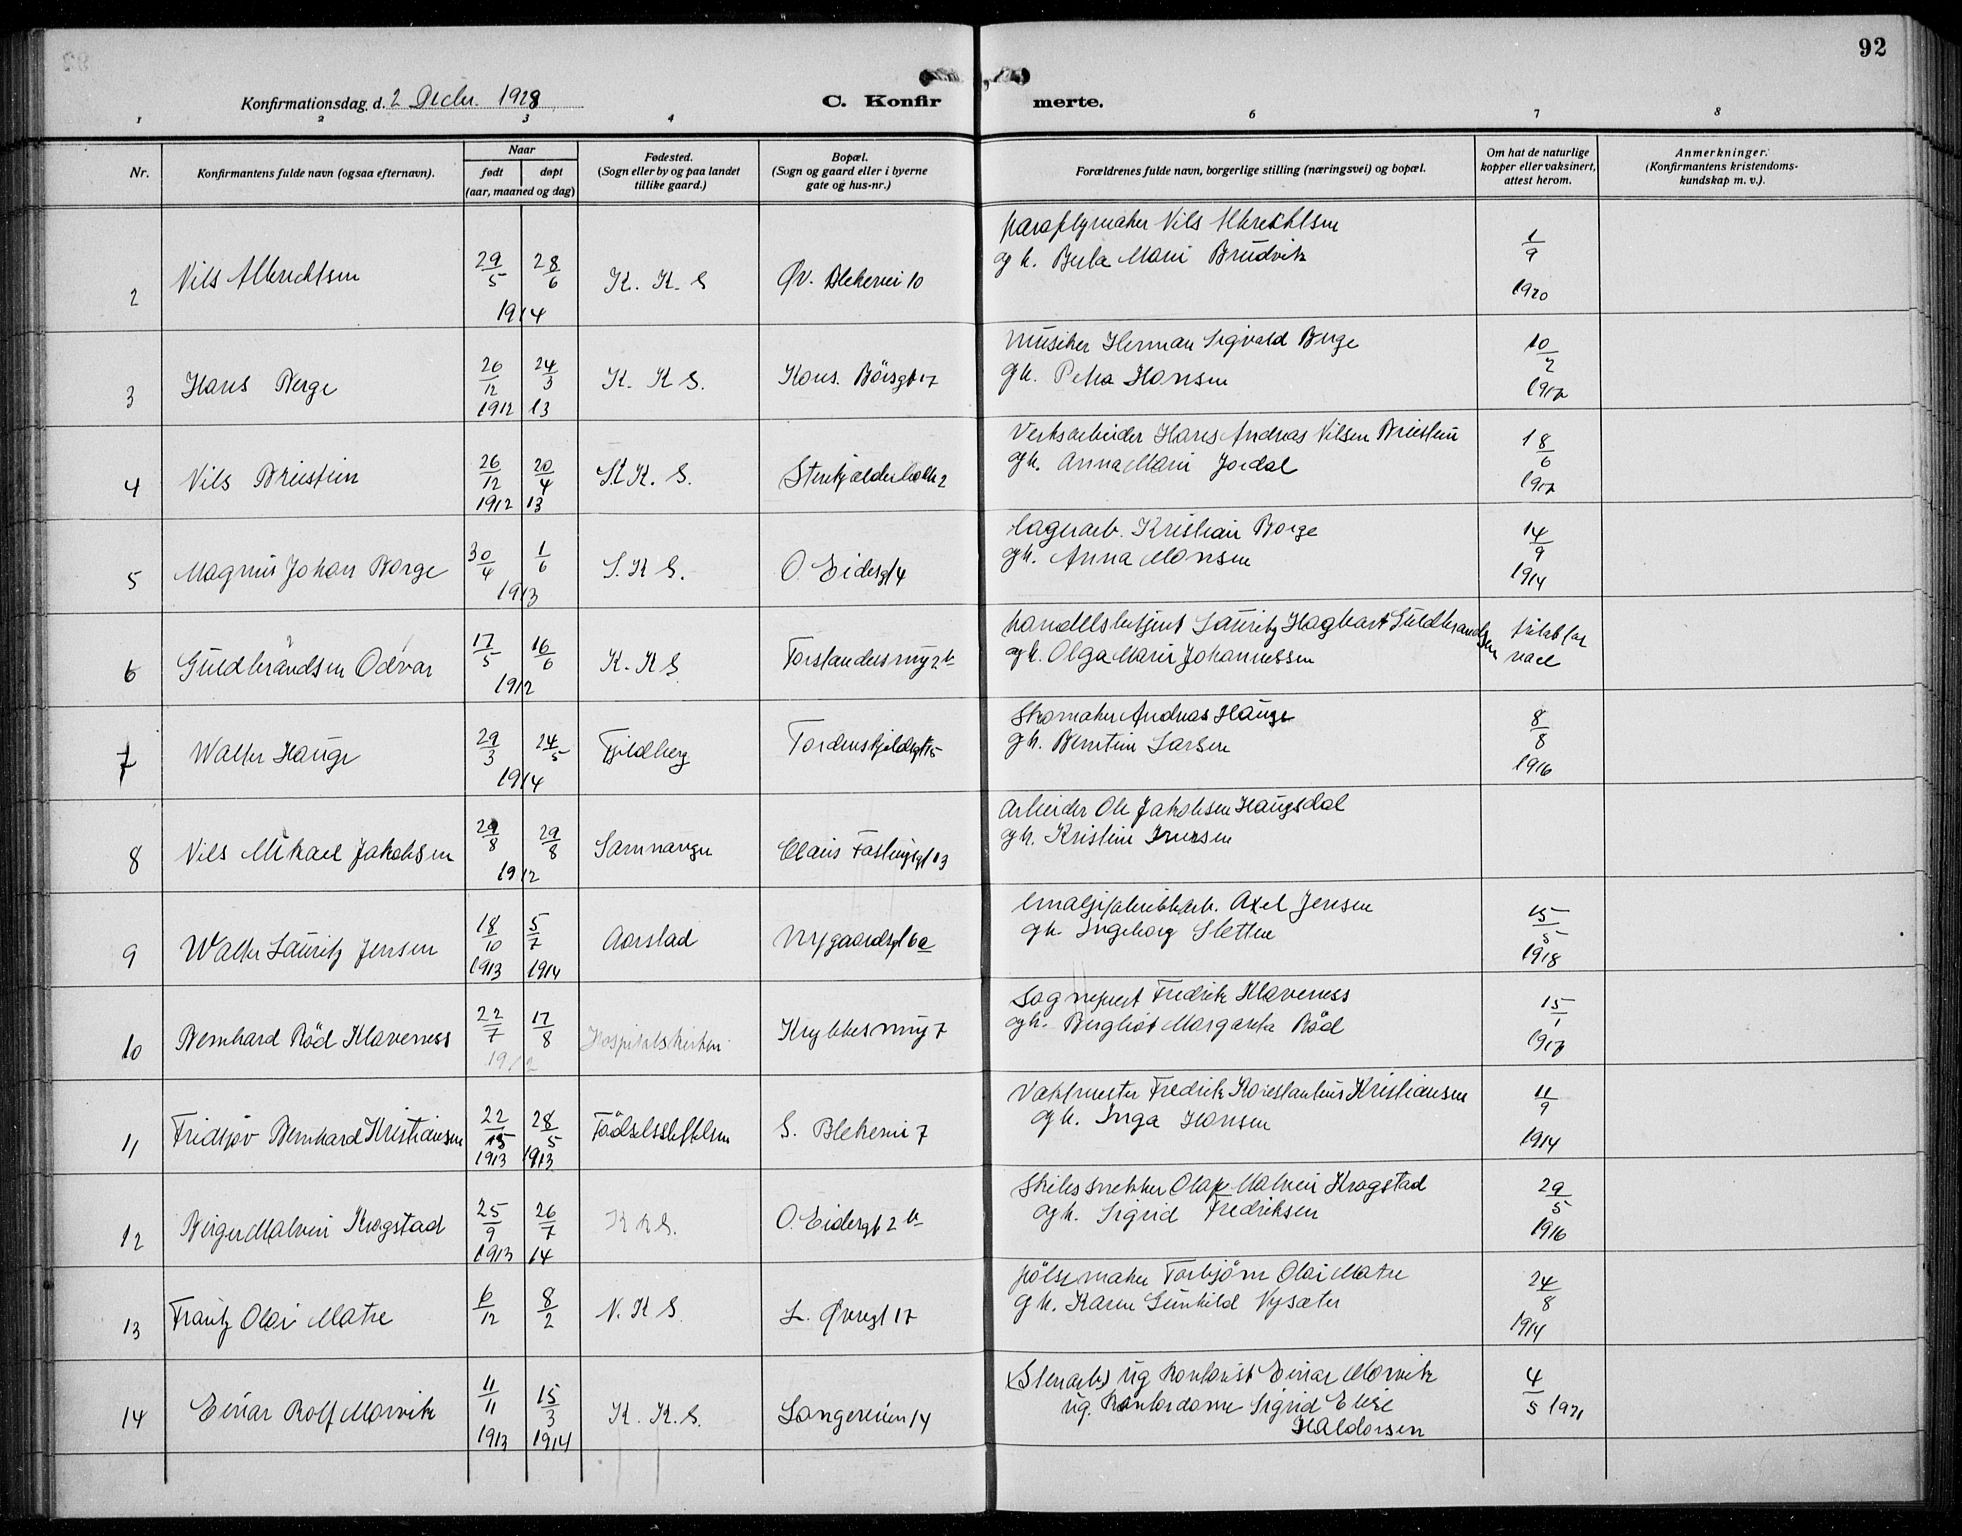 92
Konfirmationsdag d. 2 Decbr. 1928
C. Konfirmerte.
1 2 3 4 6 7 8
Nr.
Konfirmantens fulde navn (ogsaa efternavn).
Naar
født
døpt
(aar, maaned og dag)
Fødested.
(Sogn eller by og paa landet
tillike gaard.)
Bopæl.
(Sogn og gaard eller i byerne
gate og hus-nr.)
Forældrenes fulde navn, borgerlige stilling (næringsvei) og bopæl.
Om hat de naturlige
kopper eller vaksinert,
attest herom.
Anmerkninger.
(Konfirmantens kristendoms-
kundskap m. v.).
2 Nils Albrechtsen 29/5 28/6 1914 K. K. S Øv. Blekevei 10
paraplymaker Nils Albrechtsen
og h. Berta Marie Brudvik
1/9 1920
3 Hans Berge 26/12 1912 24/3 13 K. K S. Kons. Börsgt 17
Musiker Herman Sigvald Berge
og h. Petra Hansen
10/2 1917
4 Nils Breistein 26/12 1912 20/4 13 St K. S. Stenkjelderbakk 2
Verksarbeider Hans Andreas Nilsen Breistein
og h. Anna Marie Jordal
18/6 1917
5 Magnus Johan Borge 30/4 1/6 1913 S. K S. O. Eidesgt 4
lagerarb. Kristian Borge
og h. Anna Monsen
14/9 1914
6 Guldbrandsen Odvar 17/5 16/6 1912 K. K S Forstandersmug 2 b
handelsbetjent Lauritz Hagbart Guldbrandsen
og h. Olga Marie Johannessen
7 Walter Hauge 29/3 24/5 1914 Fjeldberg Tordenskjoldgt 15
Skomaker Andreas Hauge
og h. Berntine Larsen
8/8 1916
8 Nils Mikael Jakobsen 29/8 29/8 1912 Samnanger Claus Fastingsgt 13
Arbeider Ole Jakobsen Haugsdal
og h. Kristine Iversen
9 Walter Lauritz Jensen 18/10 1913 5/7 1914 Aarstad Nygaardsgt 6a
emaljefabrikkarb. Axel Jensen
og h. Ingeborg Sletten
15/5 1918
10 Bernhard Röd Klaveness 22/7 17/8 1912 Hospitalskirken Krybbesmug 7
Sogneprest Fredrik Klaveness
og h. Bergliot Margareta Röd
15/1 1917
11 Fridtjov Bernhard Kristiansen 22/5 1913 28/5 1913 Födselsstiftelsen S. Blekevei 7
Vaktmester Fredrik Konstantius Kristiansen
og h. Inga Hansen
11/9 1914
12 Birger Malvin Krogstad 25/9 1913 26/7 14 K K S. O. Eidesgt 2 b
Skibssnekker Olaf Malvin Krogstad
og h. Sigrid Fredriksen
29/5 1916
13 Frantz Olai Matre 6/12 8/2 N. K S. L. Øvregt 17
pölsemaker Torbjörn Olai Matre
og h. Karen Gunhild Nysæter
24/8 1914
14 Einar Rolf Morvik 11/11 1913 15/3 1914 K. K. S. Langeveien 14
Stenarb ug Kontorist Einar Morvik
ug. Kontordame Sigrid Elise
Haldorsen
4/5 1921